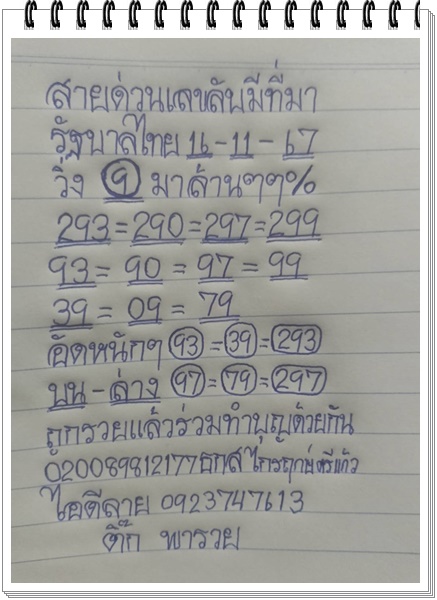 สายด่วนเลขลับมีที่มา
รัฐบาลไทย 16-11-67
วิ่ง 9 มาล้านๆๆ%
293=290=297=299
93=90=97=99
39=09=79
อัดหนักๆ 93=39=293
บน-ล่าง 97=79=297
ถูกรวยแล้วร่วมทำบุญด้วยกัน
020089812177 ธกส ไกรฤกษ์ศรีแก้ว
ไอดีลาย 0923747613
ติ๊ก พารวย